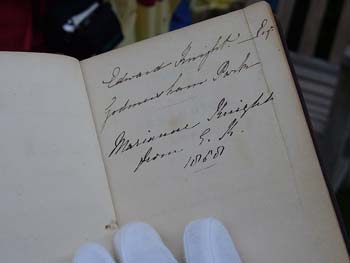 Edward Knight Esq
Godmersham Park
Marianne Knight
from E. K.
1868